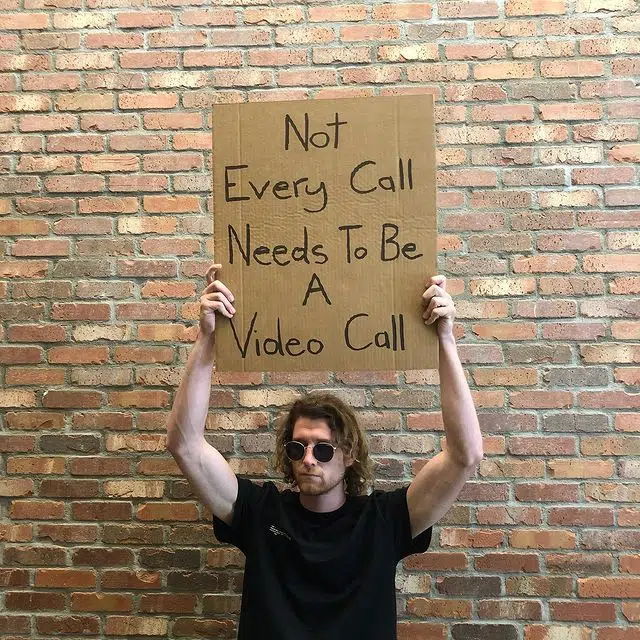 Not
Every Call
Needs To Be
A
Video Call